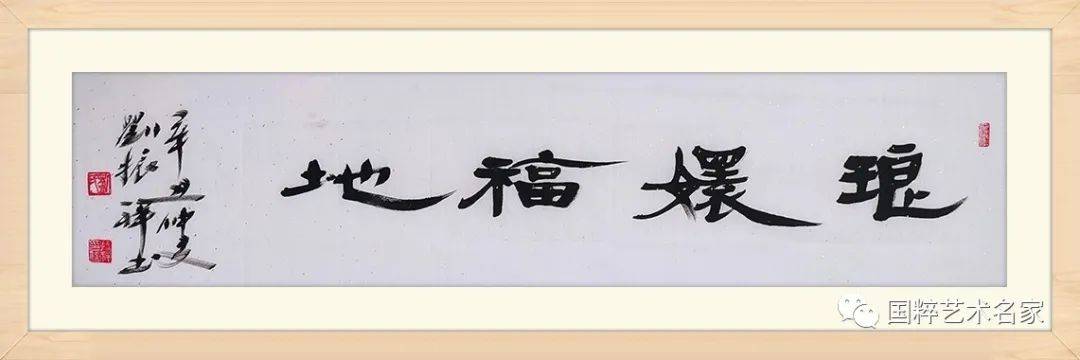 琅嬛福地
辛丑仲夏
劉振祥书
国粹艺术名家